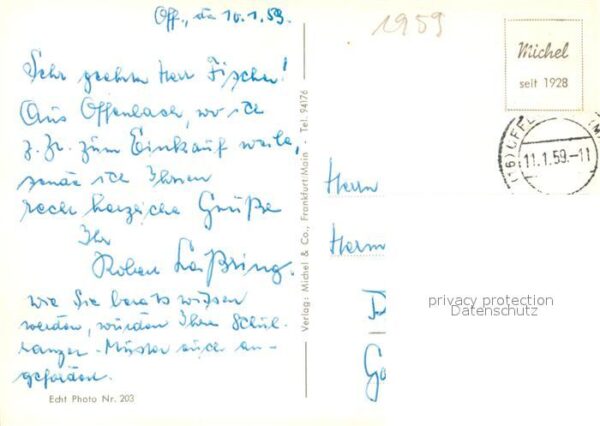 Off., den 10.1.59.
1959
Michel
seit 1928
Sehr geehrter Herr Fischer!
Aus Offenbach, wo ich
z. Zt. zum Einkauf weile,
sende ich Ihnen
recht herzliche Grüße
Ihr
Wie Sie bereits wissen
werden, wurden Ihre Schul-
ranzen-Muster auch an-
gefordert.
Echt Photo Nr. 203
Verlag: Michel & Co., Frankfurt-Main · Tel. 94176
(16) OFFE
11.1.59.-11
Herrn
privacy protection
Datenschutz